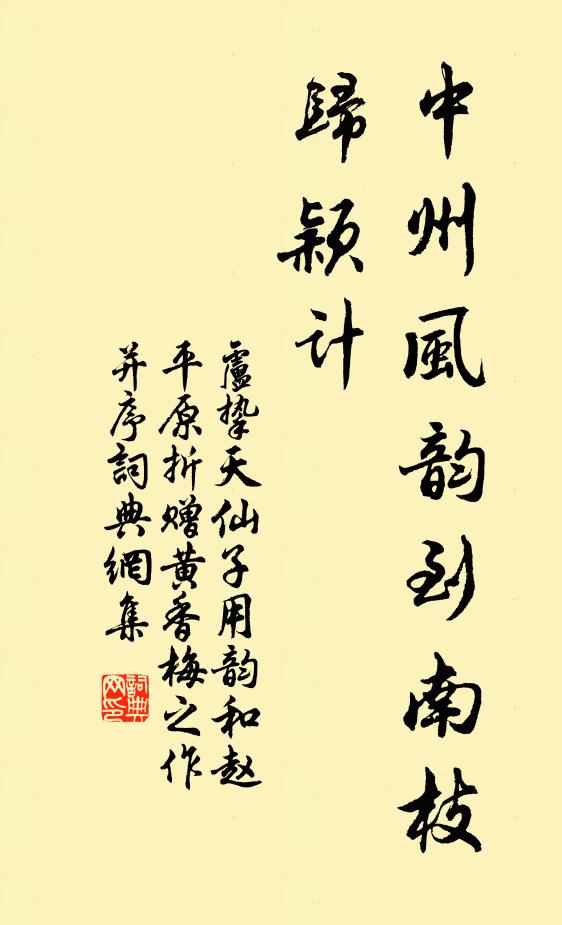 中州風韵到南枝
歸穎计
盧摯天仙子用韵和赵
平原折赠黄香梅之作
并序詞典網集
詞典
网印